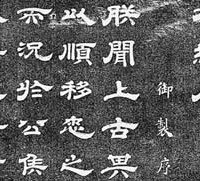 御製序
朕聞上古其
以順移忠之
而況於公侯